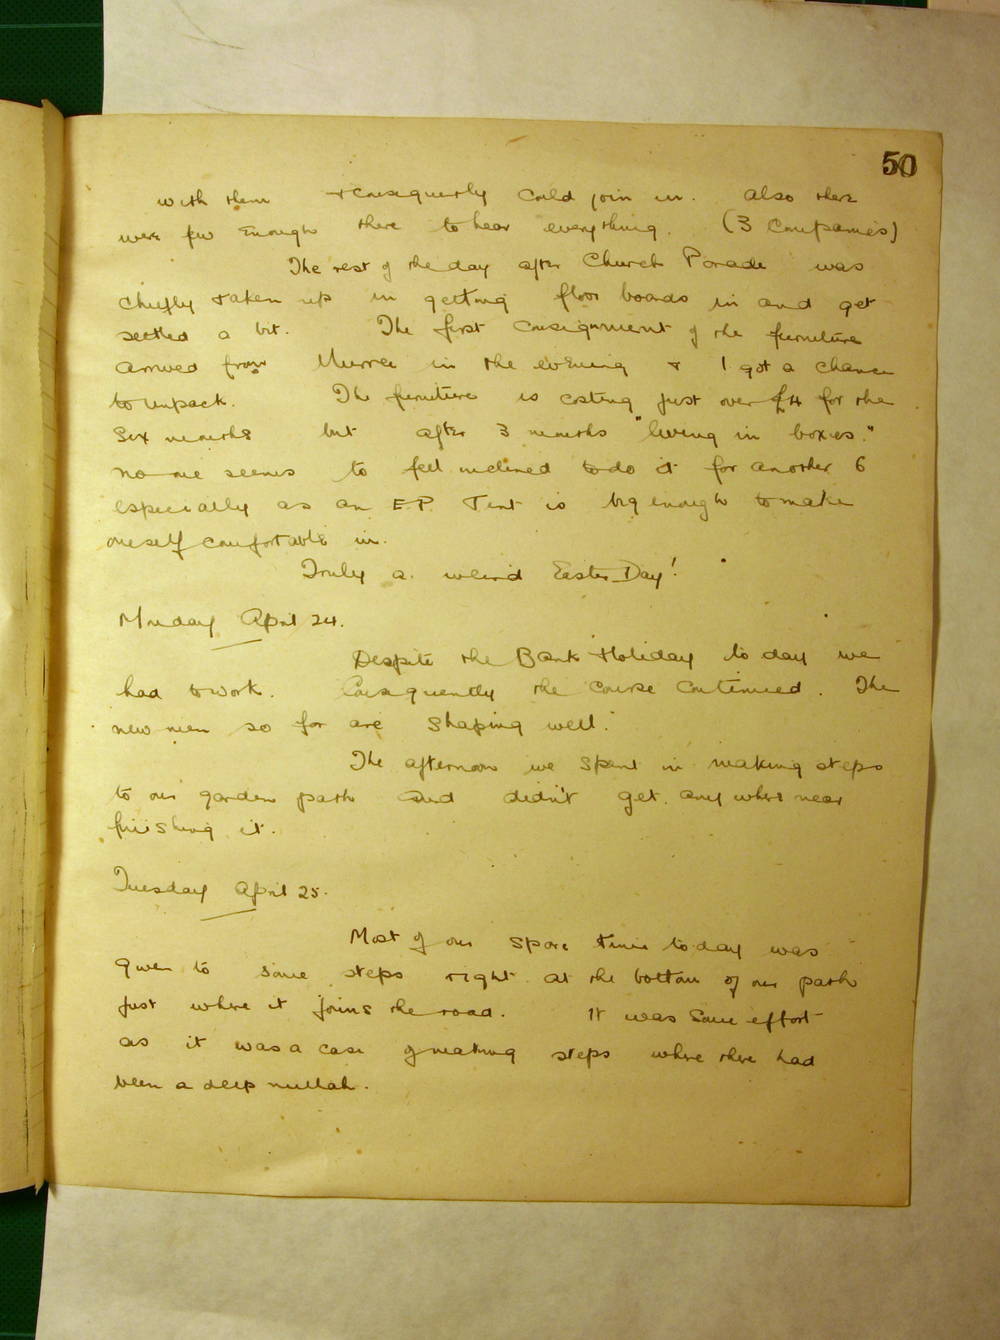 50
with them & consequently could join in. Also there
were few enough there to hear everything. (3 Companies)
The rest of the day after Church Parade was
chiefly taken up in getting floor boards in and get
settled a bit. The first consignment of the furniture
arrived from Murree in the evening & I got a chance
to unpack. The furniture is costing just over £4 for the
six months but after 3 months "living in boxes"
no one seems to feel inclined to do it for another 6
especially as an E.P. Tent is big enough to make
oneself comfortable in.
Truly a weird Easter Day!
Monday April 24.
Despite the Bank Holiday to day we
had to work. Consequently the course continued. The
new men so far are shaping well.
The afternoon we spent in making steps
to our garden path and didn't get any where near
finishing it.
Tuesday April 25.
Most of our spare time to day was
given to some steps right at the bottom of our path
just where it joins the road. It was some effort
as it was a case of making steps where there had
been a deep nullah.